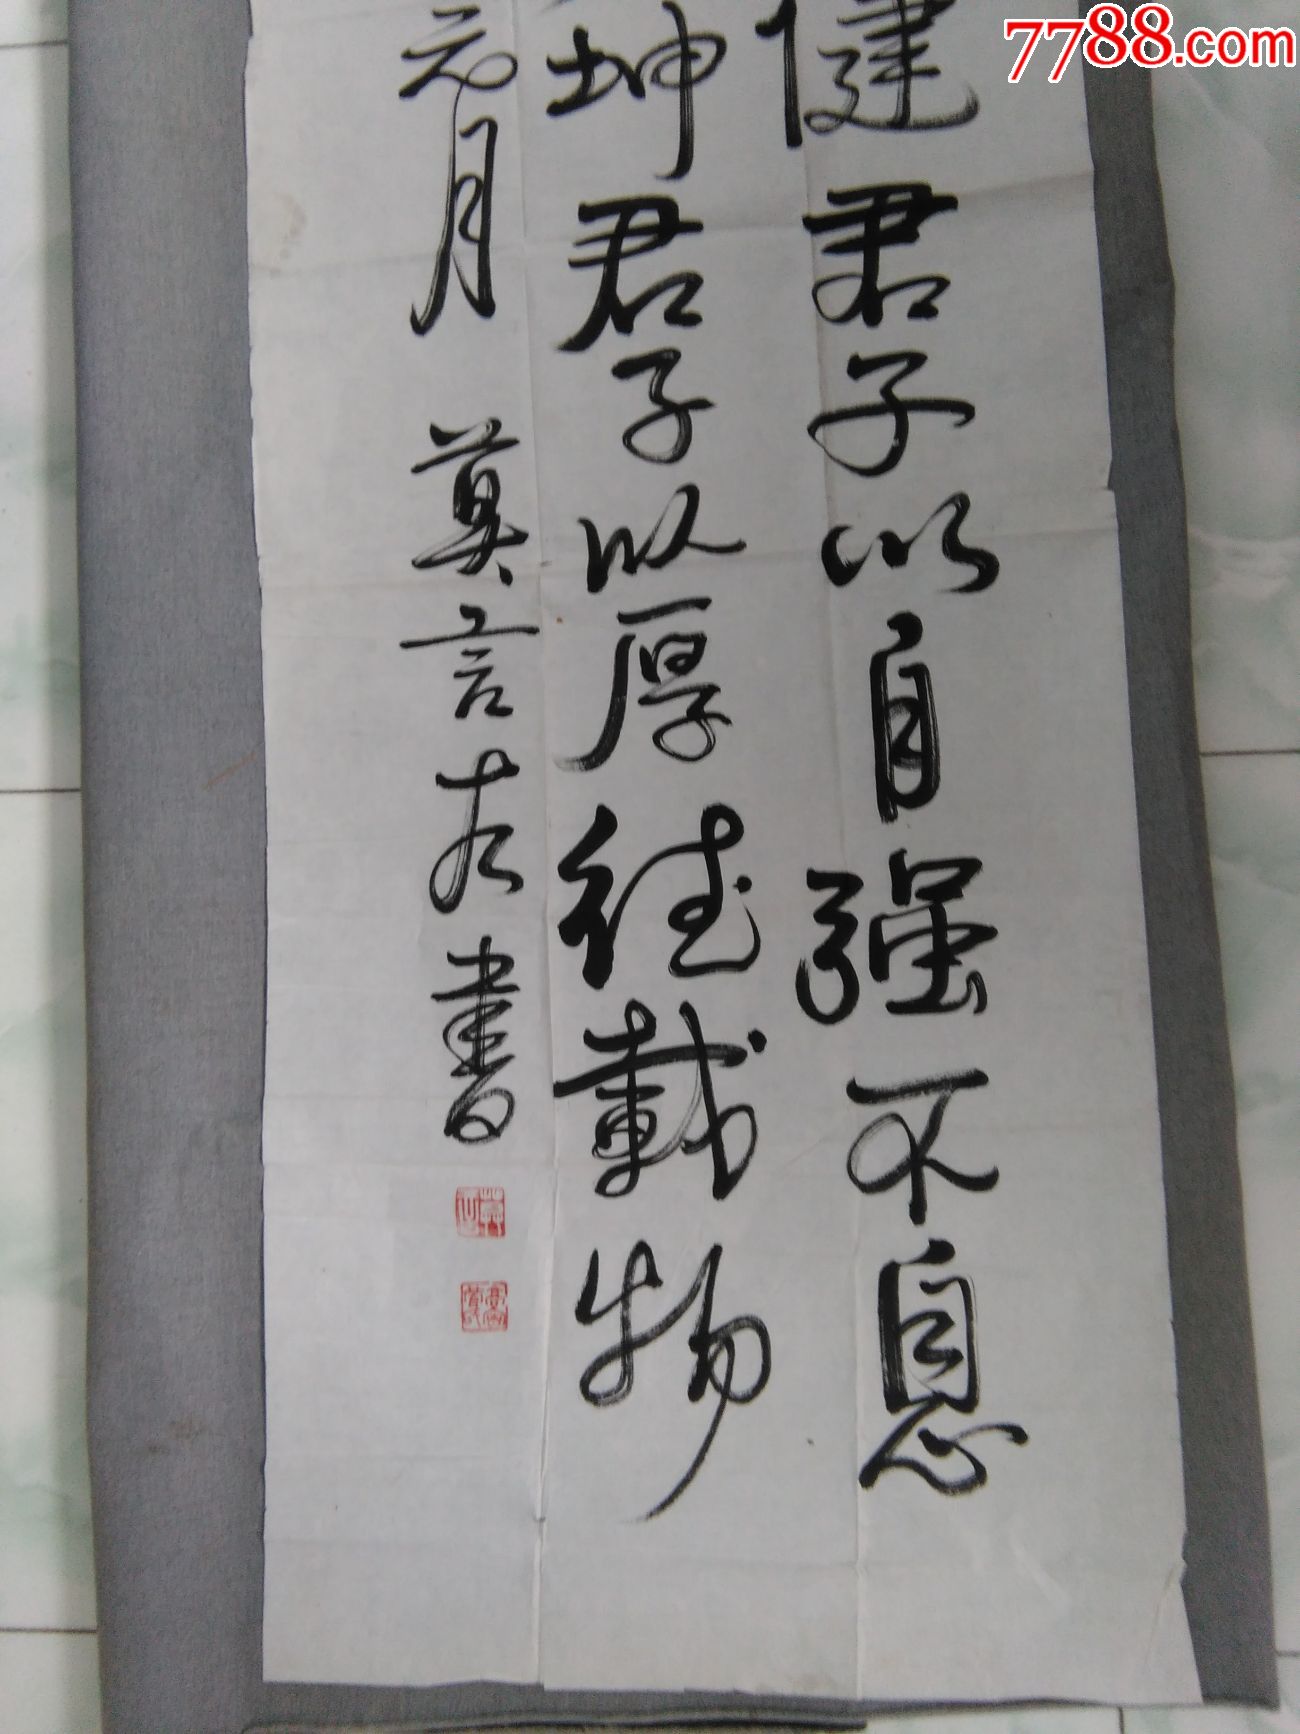 7788.com
健君子以自强不息
坤君子以厚德載物
元月 莫言左書